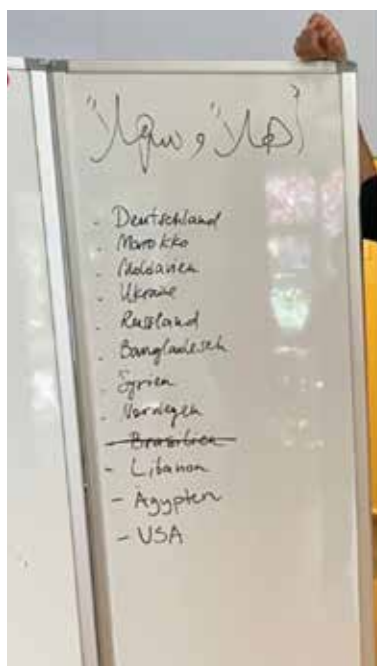 أهلاً وسهلاً
- Deutschland
- Marokko
- Moldavien
- Ukraine
- Russland
- Bangladesch
- Syrien
- Norwegen
- Brasilien
- Libanon
- Ägypten
- USA